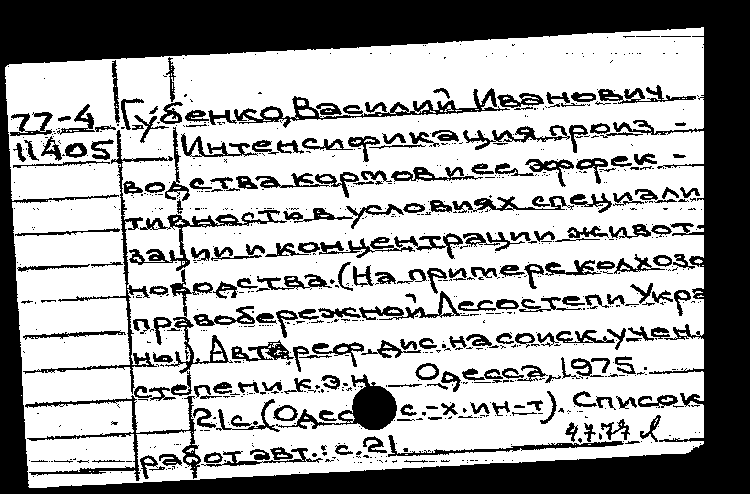 77-4 Губенко, Василий Иванович.
11405 Интенсификация произ -
водства кормов и ее эффек -
тивность в условиях специали
зации и концентрации живот-
новодства. (На примере колхозо
правобережной Лесостепи Укра
ны). Автореф. дис. на соиск. учен.
степени к.э.н. Одесса, 1975.
21с. (Одес с.-х. ин-т). Список
работ авт.: с. 21.